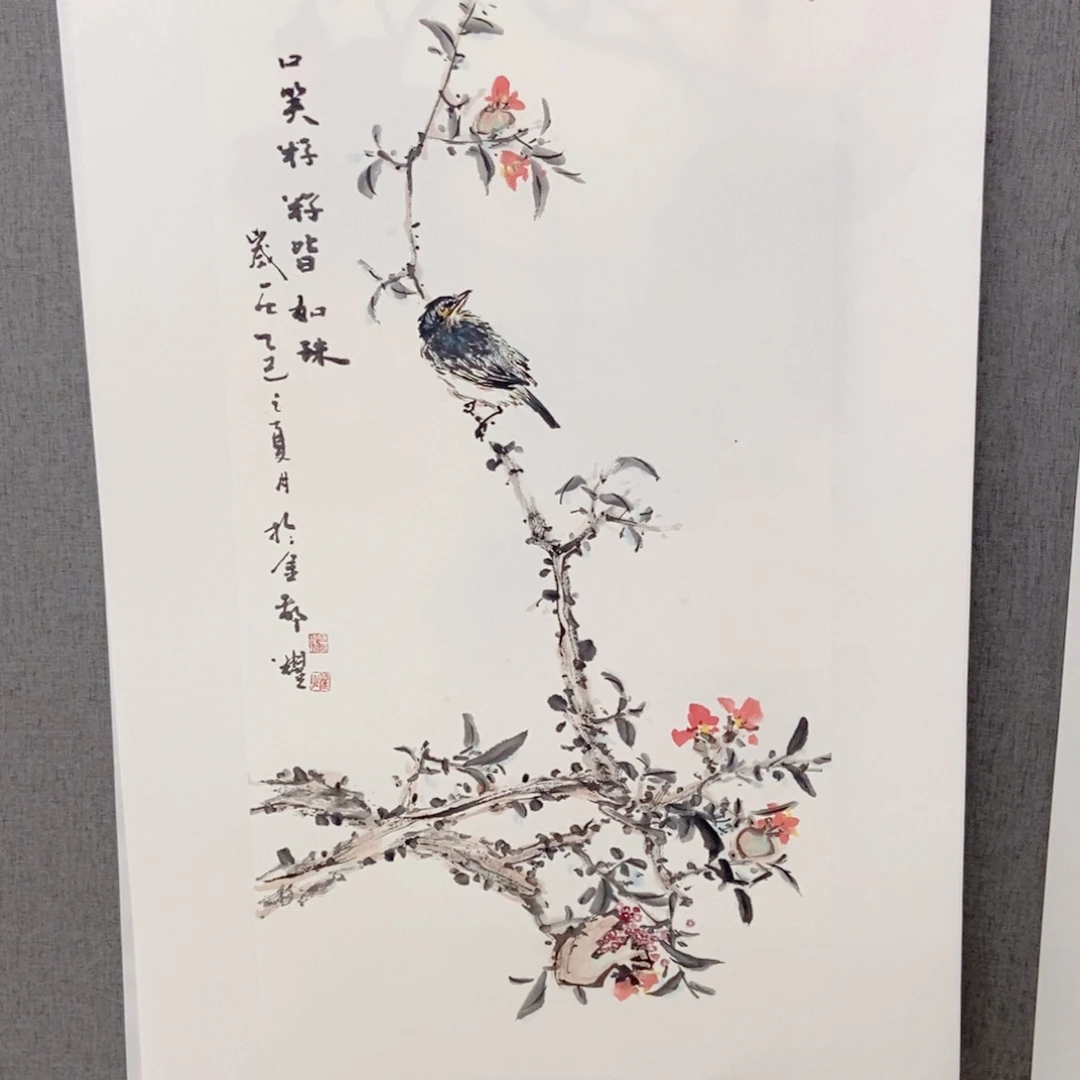 口笑籽籽皆如珠
歲在乙巳之夏月於金都 耀